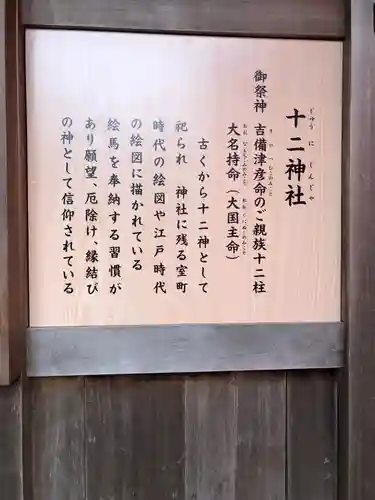 十二神社
じゅうにじんじゃ
御祭神 吉備津彦命のご親族十二柱
きびつひこのみこと
大名持命（大国主命）
おおなむちのみこと おおくにぬしのみこと
古くから十二神として
祀られ 神社に残る室町
時代の絵図や江戸時代
の絵図に描かれている
絵馬を奉納する習慣が
あり願望、厄除け、縁結び
の神として信仰されている